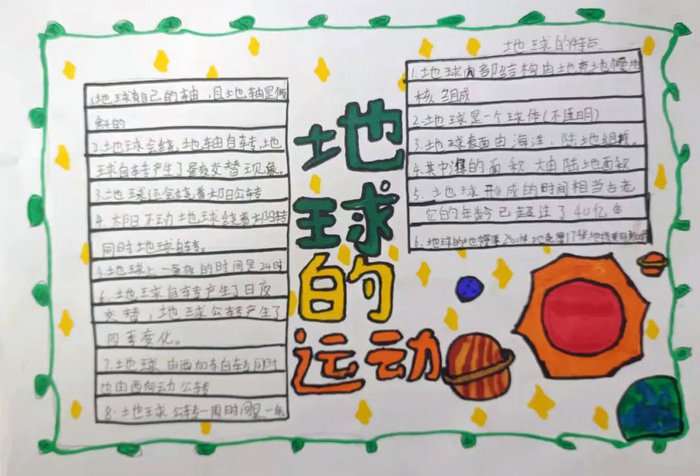 地球的运动
1.地球有自己的轴，且地轴是倾
斜的
2.地球会绕地轴自转,地
球自转产生了昼夜交替现象。
3.地球还会绕着太阳公转
4.太阳不动地球绕着太阳转
同时地球自转。
5.地球上一昼夜的时间是24时
6.地球自转产生了日夜
交替，地球公转产生了
四季变化。
7.地球由西向东自转同时
也由西向动公转
8.地球公转一周时间是一年
地球的特点
1.地球内部结构由地壳地幔地
核组成
2.地球是一个球体(不透明)
3.地球表面由海洋,陆地组成。
4.其中海的面积大由陆地面积
5.地球形成的时间相当古老
它的年龄已超过了40亿年
6.地球的地幔厚